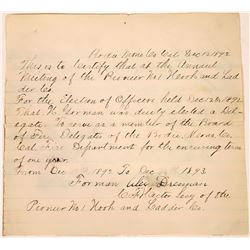 Bodie Mono Co Cal Dec 12 1892
This is to Certify that at the Annual
Meeting of the Pioneer No 1 Hook and Lad
der Co.
For the Election of Officers held Dec 12th 1892
That N. Gorman was duely elected a Del-
egate. To serve as a member of the Board
of Fire Delegates of the Bodie, Mono, Co.
Cal Fire Department for the ensuring term
of one year.
From Dec 1892 To Dec 1893
Forman
Secy of the
Pioneer No 1 Hook and Ladder Co.